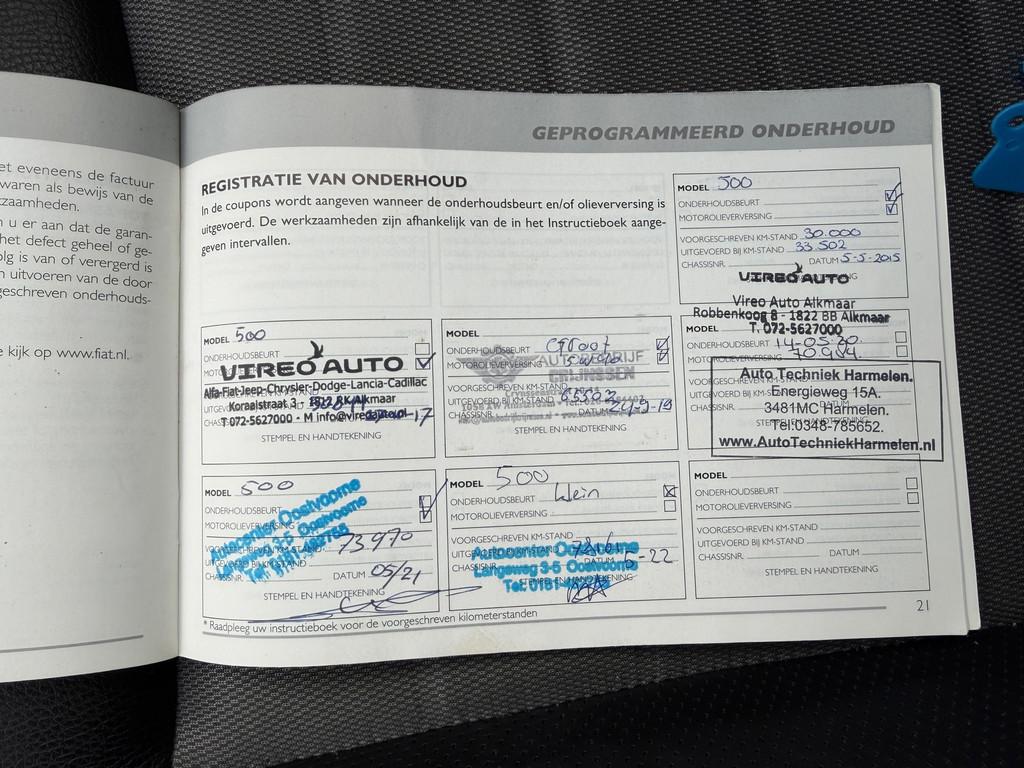 et eveneens de factuur
waren als bewijs van de
zaamheden.
n u er aan dat de garan-
het defect geheel of ge-
olg is van of verergerd is
n uitvoeren van de door
geschreven onderhouds-
e kijk op www.fiat.nl.
GEPROGRAMMEERD ONDERHOUD
REGISTRATIE VAN ONDERHOUD
In de coupons wordt aangeven wanneer de onderhoudsbeurt en/of olieverversing is
uitgevoerd. De werkzaamheden zijn afhankelijk van de in het Instructieboek aange-
geven intervallen.
MODEL 500
ONDERHOUDSBEURT
MOTOROLIEVERVERSING
VOORGESCHREVEN KM-STAND 30.000
UITGEVOERD BIJ KM-STAND 33.502
CHASSISNR. DATUM 5-5-2015
VIREO AUTO
Vireo Auto Alkmaar
Robbenkoog 8 - 1822 BB Alkmaar
T. 072-5627000
MODEL 500
ONDERHOUDSBEURT
VIREO AUTO
Alfa-Fiat-Jeep-Chrysler-Dodge-Lancia-Cadillac
Koraalstraat 3 - 1812 RK Alkmaar
T 072-5627000 - M info@vireoauto.nl
STEMPEL EN HANDTEKENING
MODEL Groot
ONDERHOUDSBEURT
MOTOROLIEVERVERSING
AUTOBEDRIJF
CRIJNSSEN
VOORGESCHREVEN KM-STAND
UITGEVOERD BIJ KM-STAND 65502
DATUM 24-9-19
STEMPEL EN HANDTEKENING
MODEL
ONDERHOUDSBEURT 14-05-20
MOTOROLIEVERVERSING 70.994
Auto Techniek Harmelen.
Energieweg 15A.
3481MC Harmelen.
Tel:0348-785652.
www.AutoTechniekHarmelen.nl
MODEL 500
ONDERHOUDSBEURT
MOTOROLIEVERVERSING
Autocenter Oostvoorne
Langeweg 3-5 Oostvoorne
VOORGESCHREVEN KM-STAND 73970
UITGEVOERD BIJ KM-STAND
CHASSISNR. DATUM 05/21
STEMPEL EN HANDTEKENING
MODEL 500
ONDERHOUDSBEURT klein
MOTOROLIEVERVERSING
VOORGESCHREVEN KM-STAND
Autocenter Oostvoorne
CHASSISNR. DATUM 5-22
Langeweg 3-5 Oostvoorne
Tel: 0181
MODEL
ONDERHOUDSBEURT
MOTOROLIEVERVERSING
VOORGESCHREVEN KM-STAND
UITGEVOERD BIJ KM-STAND
CHASSISNR. DATUM
STEMPEL EN HANDTEKENING
* Raadpleeg uw instructieboek voor de voorgeschreven kilometerstanden
21